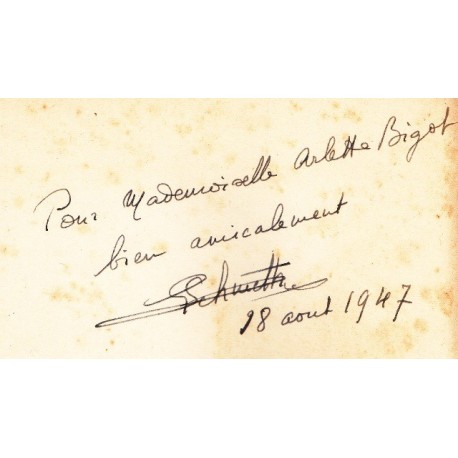 Pour Mademoiselle Arlette Bigot
bien amicalement
18 aout 1947